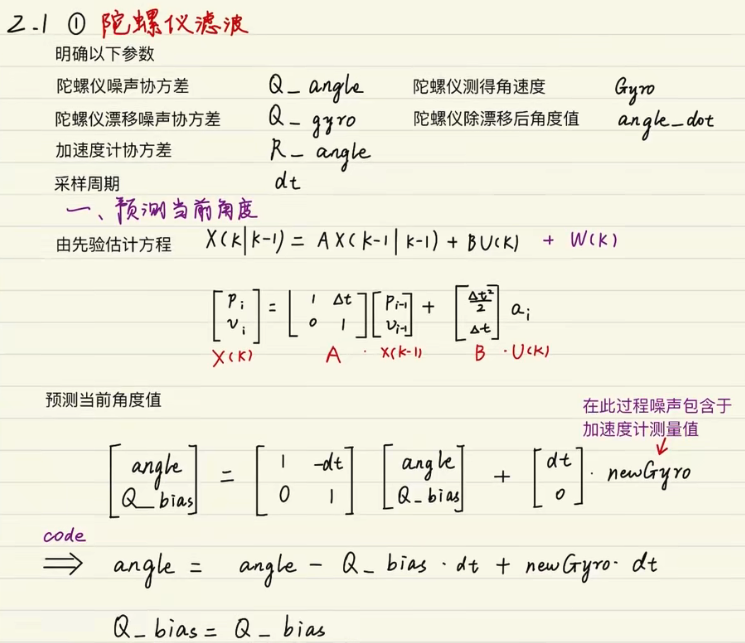 2.1 ① 陀螺仪滤波
明确以下参数
陀螺仪噪声协方差 Q_angle 陀螺仪测得角速度 Gyro
陀螺仪漂移噪声协方差 Q_gyro 陀螺仪除漂移后角度值 angle_dot
加速度计协方差 R_angle
采样周期 dt
一、预测当前角度
由先验估计方程 X(K|K-1) = AX(K-1|K-1) + BU(K) + W(K)
[Pi vi] = [1 Δt 0 1] [Pi-1 vi-1] + [Δt²/2 Δt] ai
X(K) A · X(K-1) B · U(K)
预测当前角度值
在此过程噪声包含于
加速度计测量值
[angle Q_bias] = [1 -dt 0 1] [angle Q_bias] + [dt 0] · newGyro
code
⇒ angle = angle - Q_bias · dt + newGyro · dt
Q_bias = Q_bias